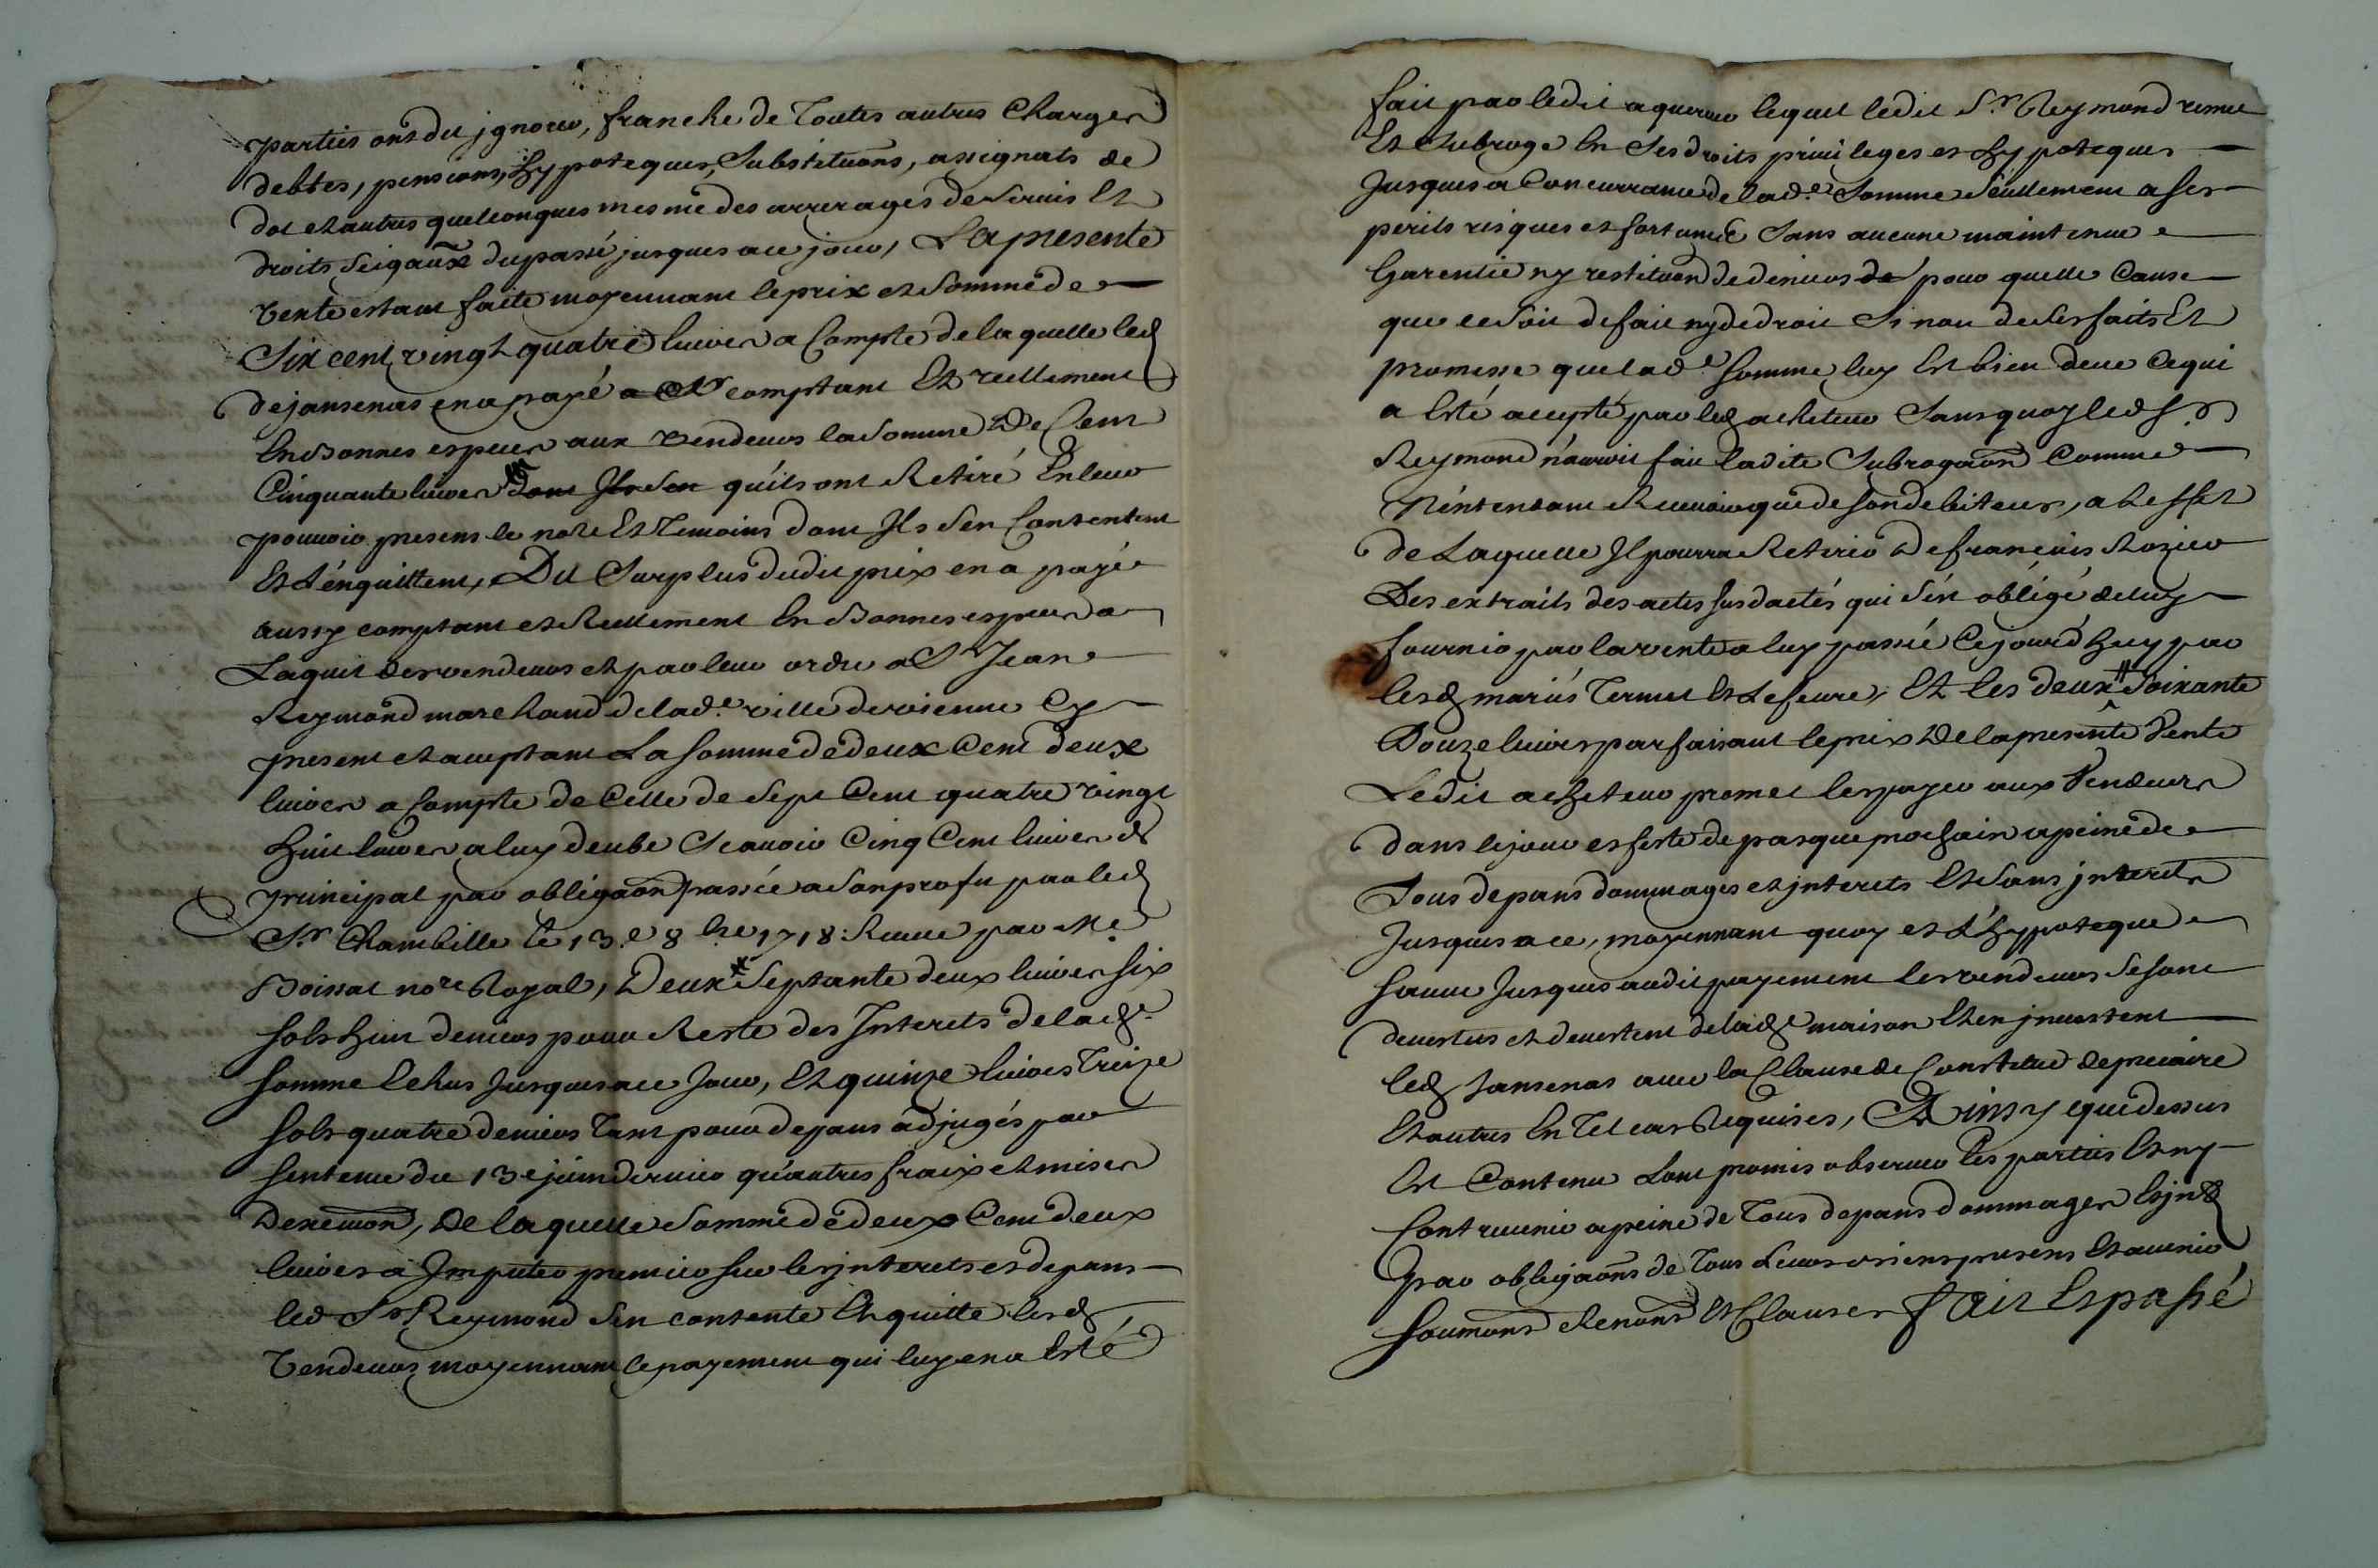 parties ont dit jgnorer, franche de Toutes autres Charges
debtes, pensions, hypoteques, Substituons, assignats de
dot et autres quelconques mesme des arrerages de Servis Et
droits Seigaux du passé jusques a ce jour, La presente
vente estant faite moyennant le prix et Somme de
Six cent vingt quatre livres a Compte de laquelle led
dejansenas en a payé comptant Et reellement
En Bonnes especes aux vendeurs la Somme De Cent
Cinquante livres qu'ils ont Retiré En leur
pouvoir presens le nore Et Temoins dont Ils s'en Contentent
Et L'enquittent, Du Surplus dudit prix en a payé
aussy comptant et Reellement En Bonnes especes a
Laquit des vendeurs et par leur ordre a Sr Jean
Reymond marchand de lad.e ville de vienne Cy
present et acceptant La Somme de deux Cent deux
livres a Compte de Celle de Sept Cent quatre vingt
huit livres a luy deube Scavoir Cinq Cent livres de
principal par obligaon passée a Son profit par led
S.r Chambille le 13.e 8bre 1718. Receue par Me
Boissat nore Royal, Deux Septante deux livres six
sols huit deniers pour Reste des Interets de lad.e
somme Echus Jusques a ce Jour, Et quinze livres Treize
sols quatre deniers Tant pour depans adjugés par
sentence du 13e juin dernier qu'autres fraix et mises
Dexeccuon, De laquelle Somme de deux Cent deux
livres a Imputer premier sur les jnterets et depans
led Sr Reymond s'en contente Et quitte lesd
Vendeurs moyennant le payement qui luy en a Esté
fait par ledit aquereur lequel ledit S.r Reymond remet
Et Subroge En Ses droits privileges et hypoteques
Jusques a Concurrance de lad.e Somme Seullement a ses
perils risques et fortunes Sans aucune maintenue
Garentie ny restituon de deniers pour quelle Cause
que ce Soit de fait ny de droit Si non de Ses faits Et
promesse que lad.e somme luy Est bien deue Ce qui
a Esté accepté par led acheteur Sans quoy led Sr
Reymond n'auroit fait ladite Subrogaon Comme
N'entendant Recevoir que de Son debiteur, a L'effet
de Laquelle Il pourra Retirer De francois Rozier
Des extraits des actes susdactés qui s'en obligé de luy
fournir par la vente a luy passée Cejourd'huy par
lesd mariés Termet Et Lefevre, Et les deux Soixante
Douze livres parfaisant le prix De la presente Vente
Ledit acheteur promet les payer aux Vendeurs
dans le jour et feste de pasque prochain a peine de
Tous depans dommages et jnterets Et Sans jnterets
Jusques a ce, moyennant quoy et L'hypoteque
sauve Jusques audit payement les vendeurs se sont
devestus et devestent de lad.e maison Et en jnvestent
led Jansenas avec la Clause de Constitut de precaire
Et autres En Tel cas Requises, Ainsy que dessus
Est Contenu L'ont promis observer les parties Et n'y
Contrevenir a peine de Tous depans dommages Et jnts
Par obligaons de Tous Leurs biens presens Et avenir
soumons Renons Et Clauses Fait Et passé